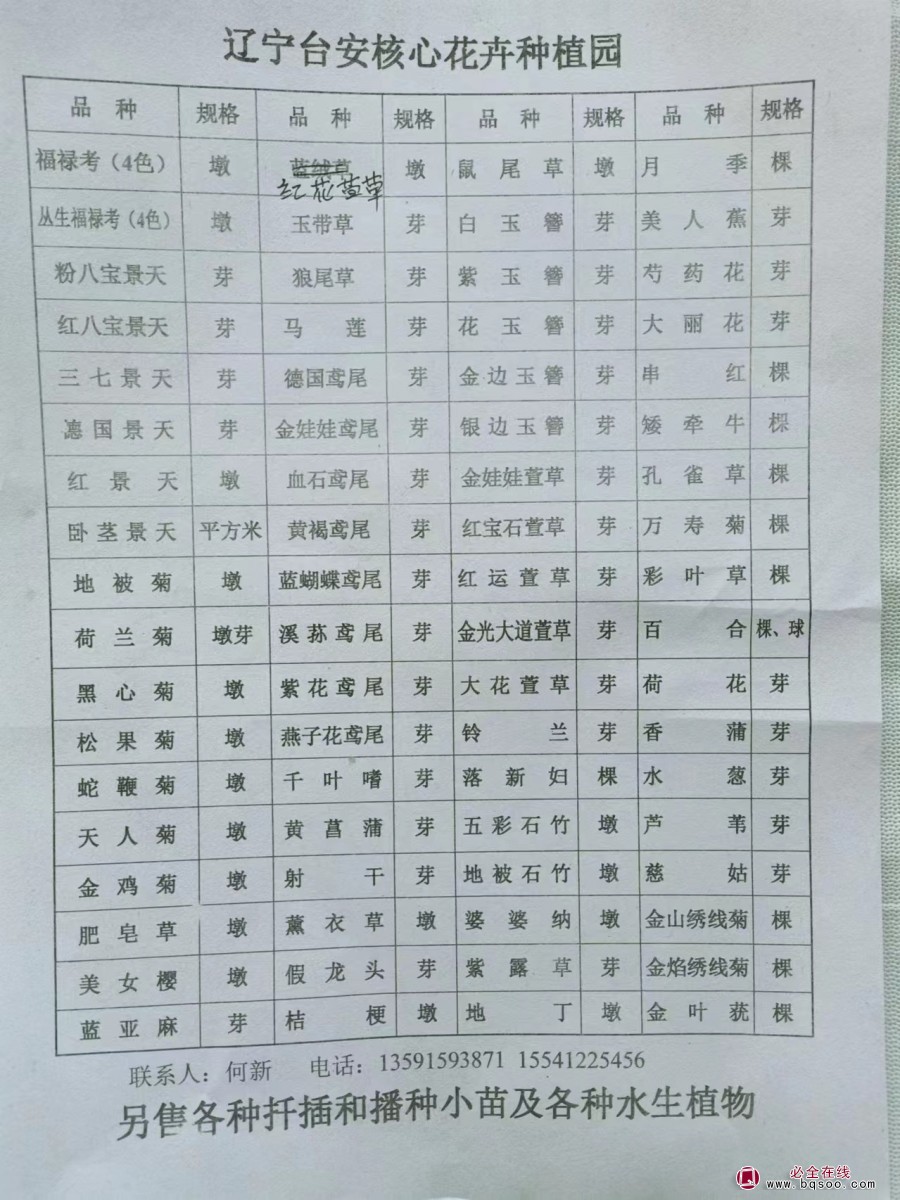 辽宁台安核心花卉种植园
品种 规格 品种 规格 品种 规格 品种 规格
福禄考（4色） 墩 蓝绒草 墩 鼠尾草 墩 月季 棵
红花萱草
丛生福禄考（4色） 墩 玉带草 芽 白玉簪 芽 美人蕉 芽
粉八宝景天 芽 狼尾草 芽 紫玉簪 芽 芍药花 芽
红八宝景天 芽 马莲 芽 花玉簪 芽 大丽花 芽
三七景天 芽 德国鸢尾 芽 金边玉簪 芽 串红 棵
德国景天 芽 金娃娃鸢尾 芽 银边玉簪 芽 矮牵牛 棵
红景天 墩 血石鸢尾 芽 金娃娃萱草 芽 孔雀草 棵
卧茎景天 平方米 黄褐鸢尾 芽 红宝石萱草 芽 万寿菊 棵
地被菊 墩 蓝蝴蝶鸢尾 芽 红运萱草 芽 彩叶草 棵
荷兰菊 墩芽 溪荪鸢尾 芽 金光大道萱草 芽 百合 棵、球
黑心菊 墩 紫花鸢尾 芽 大花萱草 芽 荷花 芽
松果菊 墩 燕子花鸢尾 芽 铃兰 芽 香蒲 芽
蛇鞭菊 墩 千叶嗜 芽 落新妇 棵 水葱 芽
天人菊 墩 黄菖蒲 芽 五彩石竹 墩 芦苇 芽
金鸡菊 墩 射干 芽 地被石竹 墩 慈姑 芽
肥皂草 墩 薰衣草 墩 婆婆纳 墩 金山绣线菊 棵
美女樱 墩 假龙头 芽 紫露草 芽 金焰绣线菊 棵
蓝亚麻 芽 桔梗 墩 地丁 墩 金叶莸 棵
联系人：何新 电话：13591593871 15541225456
另售各种扦插和播种小苗及各种水生植物
必全在线
www.bqsoo.com